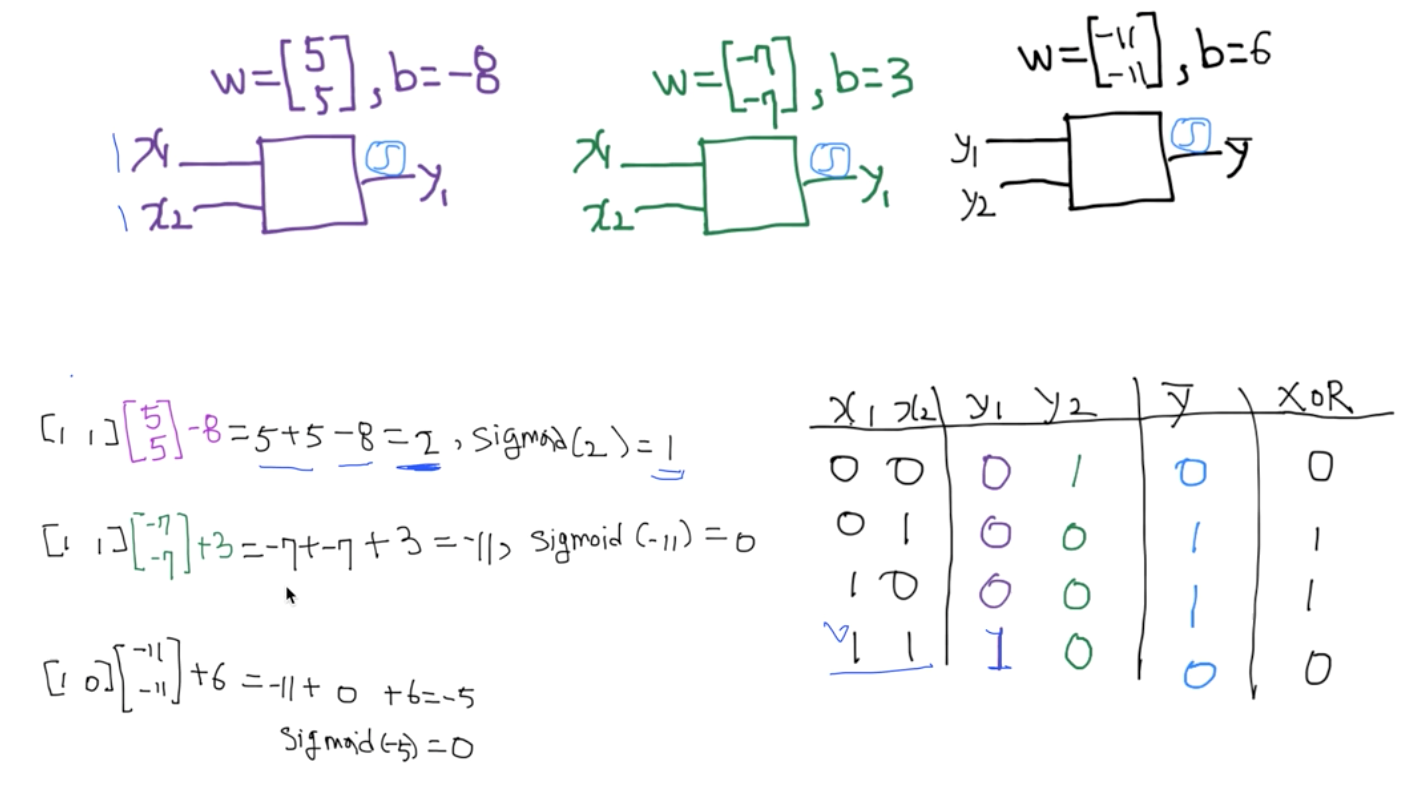 w=[5 5], b=-8
x1
x2
y1
w=[-7 -7], b=3
x1
x2
y1
w=[-11 -11], b=6
y1
y2
y̅
1
1
S
S
S
[1 1][5 5]-8=5+5-8=2, sigmoid(2)=1
[1 1][-7 -7]+3=-7+-7+3=-11, sigmoid(-11)=0
[1 0][-11 -11]+6=-11+0+6=-5
sigmoid(-5)=0
x1 x2 y1 y2 y̅ XOR
0 0 0 1 0 0
0 1 0 0 1 1
1 0 0 0 1 1
1 1 1 0 0 0